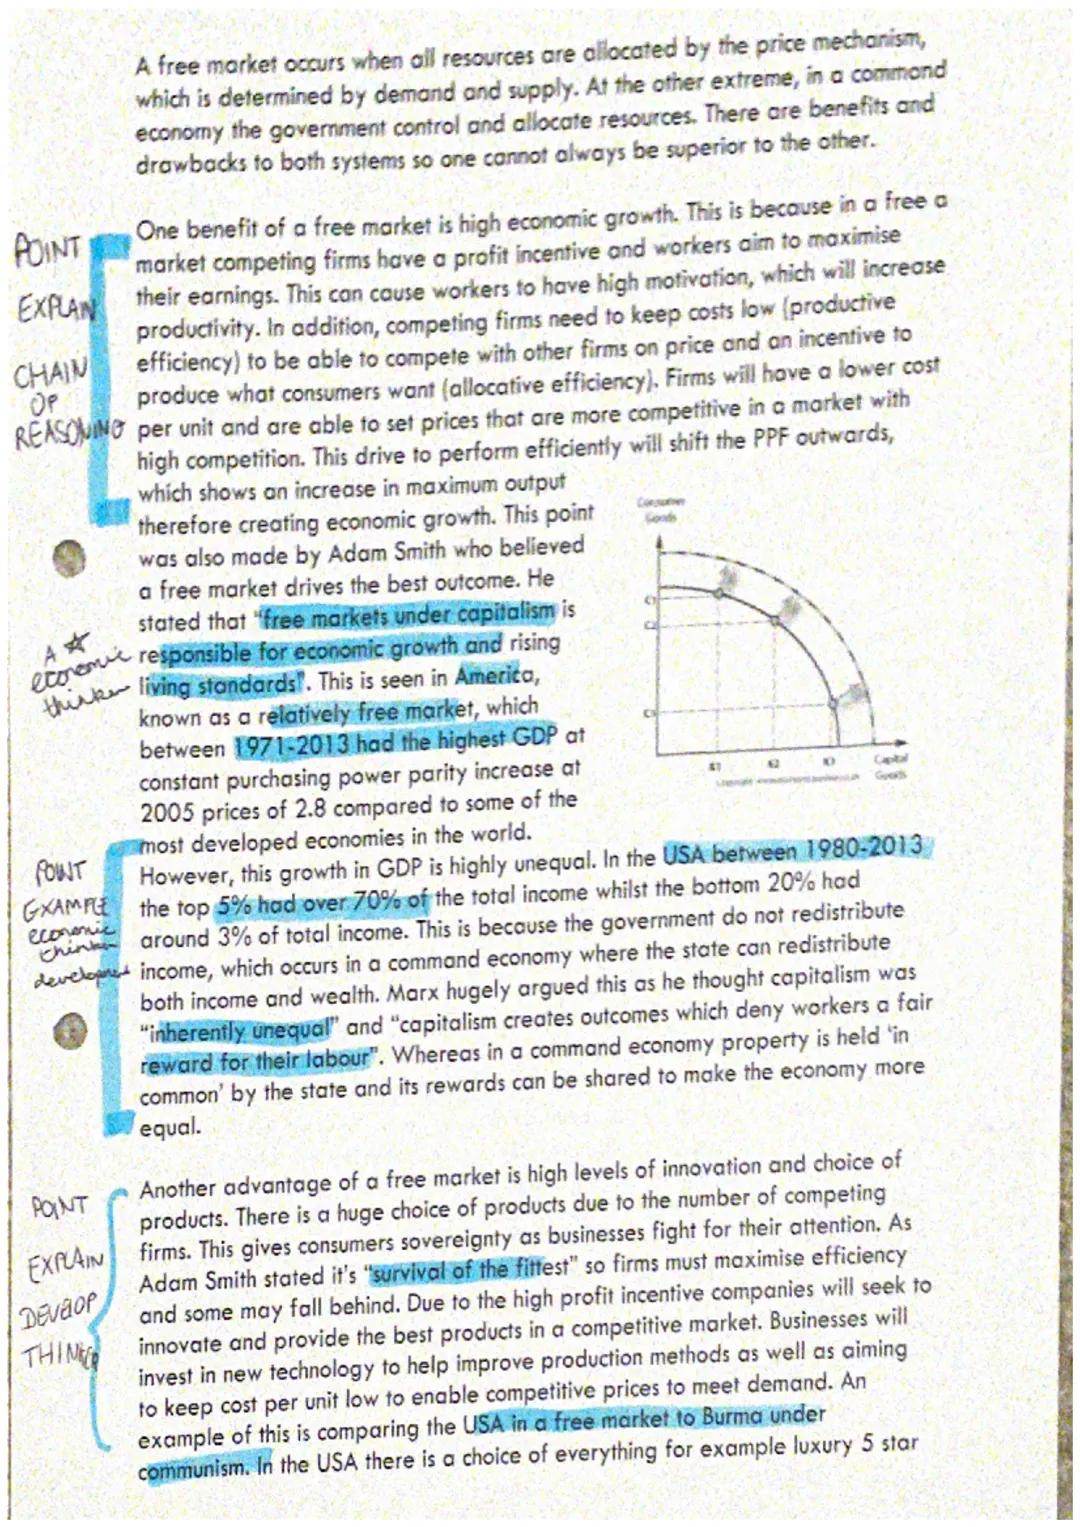 A free market occurs when all resources are allocated by the price mechanism,
which is determined by demand and supply. At the other extreme, in a command
economy the government control and allocate resources. There are benefits and
drawbacks to both systems so one cannot always be superior to the other.
POINT
EXPLAIN
CHAIN
OF
REASONING
One benefit of a free market is high economic growth. This is because in a free a
market competing firms have a profit incentive and workers aim to maximise
their earnings. This can cause workers to have high motivation, which will increase
productivity. In addition, competing firms need to keep costs low (productive
efficiency) to be able to compete with other firms on price and an incentive to
produce what consumers want (allocative efficiency). Firms will have a lower cost
per unit and are able to set prices that are more competitive in a market with
high competition. This drive to perform efficiently will shift the PPF outwards,
which shows an increase in maximum output
therefore creating economic growth. This point
was also made by Adam Smith who believed
a free market drives the best outcome. He
stated that "free markets under capitalism is
responsible for economic growth and rising
living standards". This is seen in America,
known as a relatively free market, which
between 1971-2013 had the highest GDP at
constant purchasing power parity increase at
2005 prices of 2.8 compared to some of the
most developed economies in the world.
A ☆
economic
thinker
Consumer
Goods
C1
C2
C3
K1
K2
K3
Capital
Goods
POINT
EXAMPLE
economic
thinker
development
However, this growth in GDP is highly unequal. In the USA between 1980-2013
the top 5% had over 70% of the total income whilst the bottom 20% had
around 3% of total income. This is because the government do not redistribute
income, which occurs in a command economy where the state can redistribute
both income and wealth. Marx hugely argued this as he thought capitalism was
"inherently unequal" and "capitalism creates outcomes which deny workers a fair
reward for their labour". Whereas in a command economy property is held 'in
common' by the state and its rewards can be shared to make the economy more
equal.
POINT
EXPLAIN
DEVELOP
THINKER
Another advantage of a free market is high levels of innovation and choice of
products. There is a huge choice of products due to the number of competing
firms. This gives consumers sovereignty as businesses fight for their attention. As
Adam Smith stated it's "survival of the fittest" so firms must maximise efficiency
and some may fall behind. Due to the high profit incentive companies will seek to
innovate and provide the best products in a competitive market. Businesses will
invest in new technology to help improve production methods as well as aiming
to keep cost per unit low to enable competitive prices to meet demand. An
example of this is comparing the USA in a free market to Burma under
communism. In the USA there is a choice of everything for example luxury 5 star